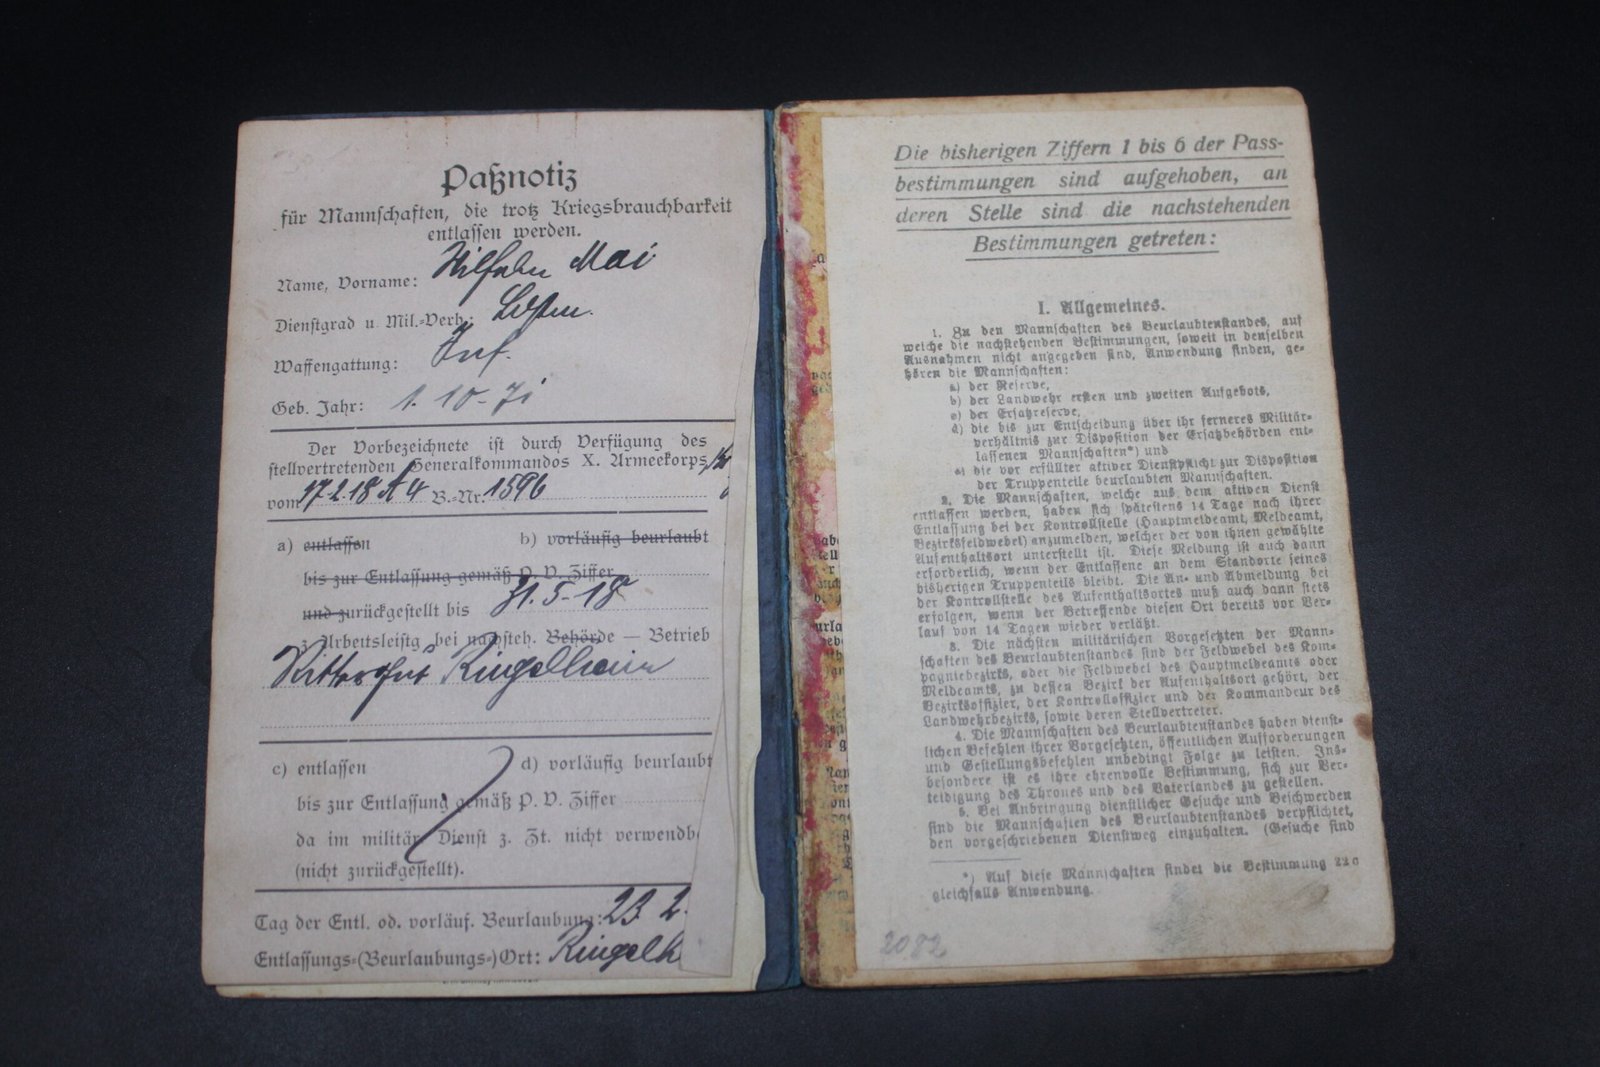 Paßnotiz
für Mannschaften, die trotz Kriegsbrauchbarkeit
entlassen werden.
Name, Vorname: Mai
Dienstgrad u. Mil.-Verh.:
Waffengattung: Inf.
Geb. Jahr: 1. 10. 71
Der Vorbezeichnete ist durch Verfügung des
stellvertretenden Generalkommandos X. Armeekorps
vom 17.2.18 A 4 B.-Nr. 1596
a) entlassen b) vorläufig beurlaubt
bis zur Entlassung gemäß P. V. Ziffer
und zurückgestellt bis 31.5.18
z. Arbeitsleistg bei nachsteh. Behörde — Betrieb
Rittergut Ringelheim
c) entlassen d) vorläufig beurlaubt
bis zur Entlassung gemäß P. V. Ziffer
da im militär. Dienst z. Zt. nicht verwendb
(nicht zurückgestellt).
Tag der Entl. od. vorläuf. Beurlaubung: 23. 2.
Entlassungs-(Beurlaubungs-)Ort: Ringelh
Die bisherigen Ziffern 1 bis 6 der Pass-
bestimmungen sind aufgehoben, an
deren Stelle sind die nachstehenden
Bestimmungen getreten:
I. Allgemeines.
1. Zu den Mannschaften des Beurlaubtenstandes, auf
welche die nachstehenden Bestimmungen, soweit in denselben
Ausnahmen nicht angegeben sind, Anwendung finden, ge-
hören die Mannschaften:
a) der Reserve,
b) der Landwehr ersten und zweiten Aufgebots,
c) der Ersatzreserve,
d) die bis zur Entscheidung über ihr ferneres Militär-
verhältnis zur Disposition der Ersatzbehörden ent-
lassenen Mannschaften*) und
e) die vor erfüllter aktiver Dienstpflicht zur Disposition
der Truppenteile beurlaubten Mannschaften.
2. Die Mannschaften, welche aus dem aktiven Dienst
entlassen werden, haben sich spätestens 14 Tage nach ihrer
Entlassung bei der Kontrollstelle (Hauptmeldeamt, Meldeamt,
Bezirksfeldwebel) anzumelden, welcher der von ihnen gewählte
Aufenthaltsort unterstellt ist. Diese Meldung ist auch dann
erforderlich, wenn der Entlassene an dem Standorte seines
bisherigen Truppenteils bleibt. Die An- und Abmeldung bei
der Kontrollstelle des Aufenthaltsortes muß auch dann stets
erfolgen, wenn der Betreffende diesen Ort bereits vor Ver-
lauf von 14 Tagen wieder verläßt.
3. Die nächsten militärischen Vorgesetzten der Mann-
schaften des Beurlaubtenstandes sind der Feldwebel des Kom-
pagniebezirks, oder die Feldwebel des Hauptmeldeamts oder
Meldeamts, zu dessen Bezirk der Aufenthaltsort gehört, der
Bezirksoffizier, der Kontrolloffizier und der Kommandeur des
Landwehrbezirks, sowie deren Stellvertreter.
4. Die Mannschaften des Beurlaubtenstandes haben dienst-
lichen Befehlen ihrer Vorgesetzten, öffentlichen Aufforderungen
und Gestellungsbefehlen unbedingt Folge zu leisten. Ins-
besondere ist es ihre ehrenvolle Bestimmung, sich zur Ver-
teidigung des Thrones und des Vaterlandes zu gestellen.
5. Bei Anbringung dienstlicher Gesuche und Beschwerden
sind die Mannschaften des Beurlaubtenstandes verpflichtet,
den vorgeschriebenen Dienstweg einzuhalten. (Gesuche sind
*) Auf diese Mannschaften findet die Bestimmung 22c
gleichfalls Anwendung.
2082